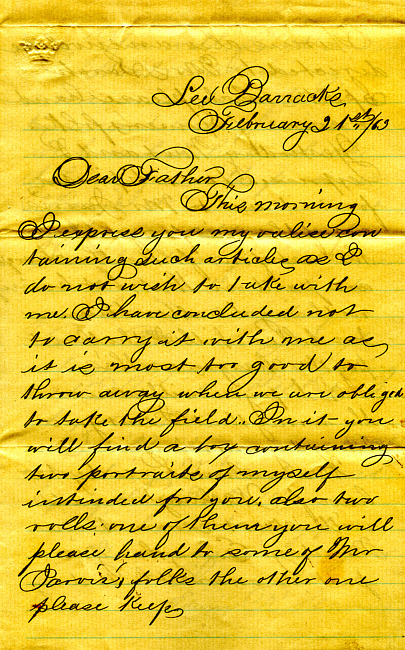 Lee Barracks
February 21st/63
Dear Father
This morning
I express you my valise con
taining such articles as I
do not wish to take with
me. I have concluded not
to carry it with me as
it is most too good to
throw away when we are obliged
to take the field.. In it you
will find a box containing
two portraits of myself
intinded for you, also two
rolls. one of them you will
please hand to some of Mr
Jarvis's folks the other one
please keep